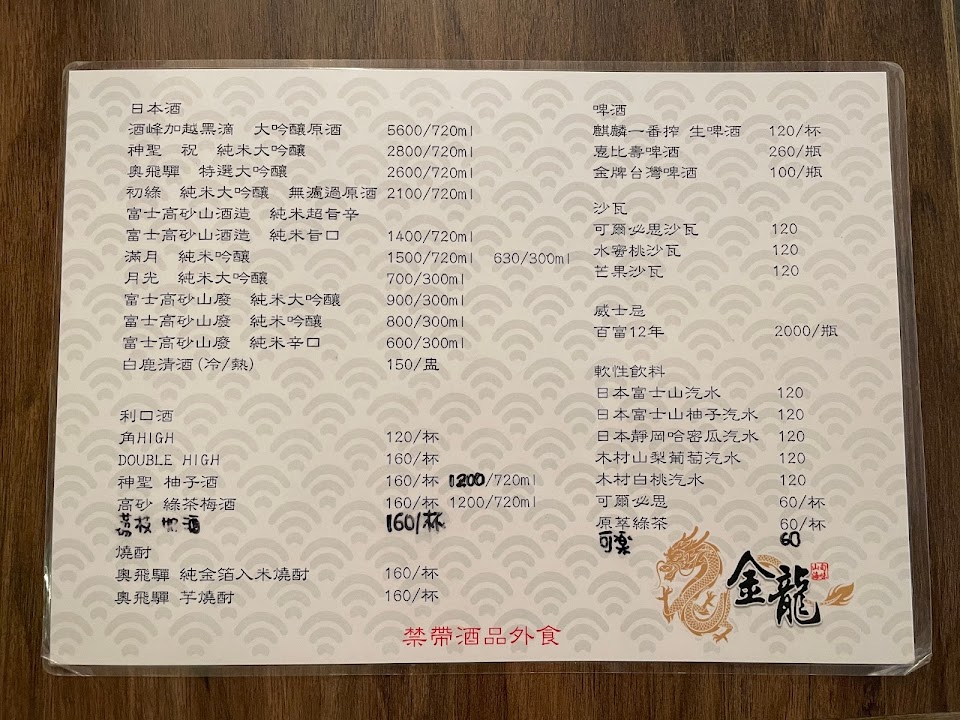 日本酒
酒峰加越黑滴 大吟釀原酒 5600/720ml
神聖 祝 純米大吟釀 2800/720ml
奧飛驒 特選大吟釀 2600/720ml
初綠 純米大吟釀 無濾過原酒 2100/720ml
富士高砂山酒造 純米超旨辛
富士高砂山酒造 純米旨口 1400/720ml
滿月 純米吟釀 1500/720ml 630/300ml
月光 純米大吟釀 700/300ml
富士高砂山廢 純米大吟釀 900/300ml
富士高砂山廢 純米吟釀 800/300ml
富士高砂山廢 純米辛口 600/300ml
白鹿清酒(冷/熱) 150/盅
利口酒
角HIGH 120/杯
DOUBLE HIGH 160/杯
神聖 柚子酒 160/杯 1200/720ml
高砂 綠茶梅酒 160/杯 1200/720ml
荔枝 酒 160/杯
燒酎
奧飛驒 純金箔入米燒酎 160/杯
奧飛驒 芋燒酎 160/杯
啤酒
麒麟一番搾 生啤酒 120/杯
惠比壽啤酒 260/瓶
金牌台灣啤酒 100/瓶
沙瓦
可爾必思沙瓦 120
水蜜桃沙瓦 120
芒果沙瓦 120
威士忌
百富12年 2000/瓶
軟性飲料
日本富士山汽水 120
日本富士山柚子汽水 120
日本靜岡哈密瓜汽水 120
木村山梨葡萄汽水 120
木村白桃汽水 120
可爾必思 60/杯
原萃綠茶 60/杯
可樂 60
金龍
禁帶酒品外食